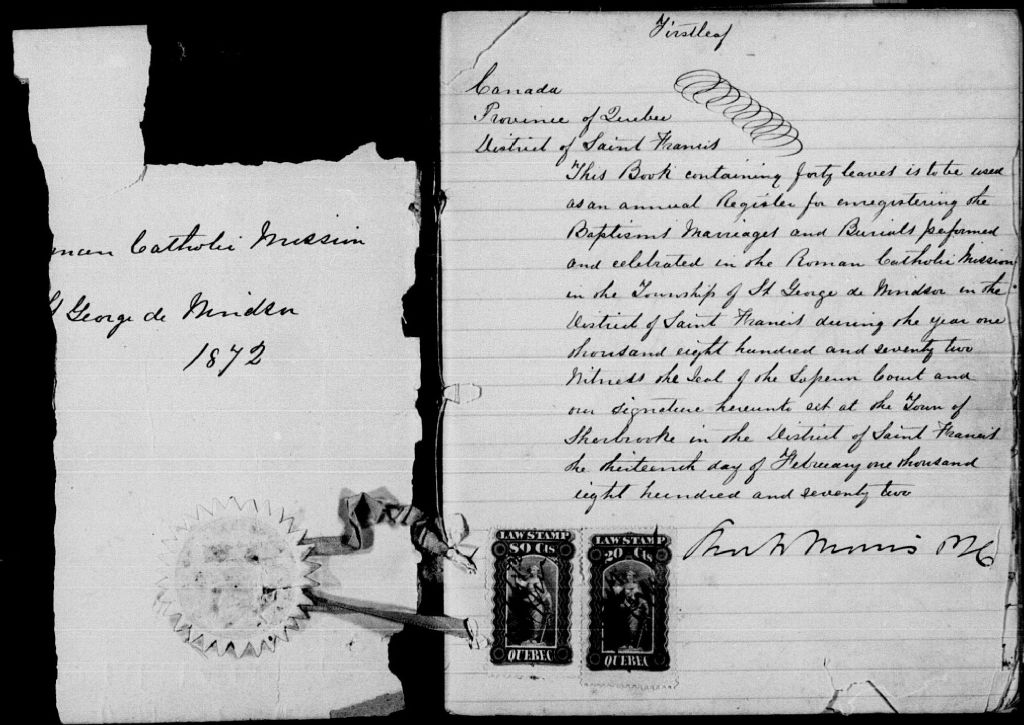 Catholic Mission
St George de Windsor
1872
Firstleaf
Canada
Province of Quebec
District of Saint Francis
This Book containing forty leaves is to be used
as an annual Register for enregistering the
Baptisms Marriages and Burials performed
and celebrated in the Roman Catholic Mission
in the Township of St George de Windsor in the
District of Saint Francis during the year one
thousand eight hundred and seventy two
Witness the Seal of the Superior Court and
our signature hereunto set at the Town of
Sherbrooke in the District of Saint Francis
the thirteenth day of February one thousand
eight hundred and seventy two
Morris
LAW STAMP
80 Cts
QUEBEC
LAW STAMP
20 Cts
QUEBEC